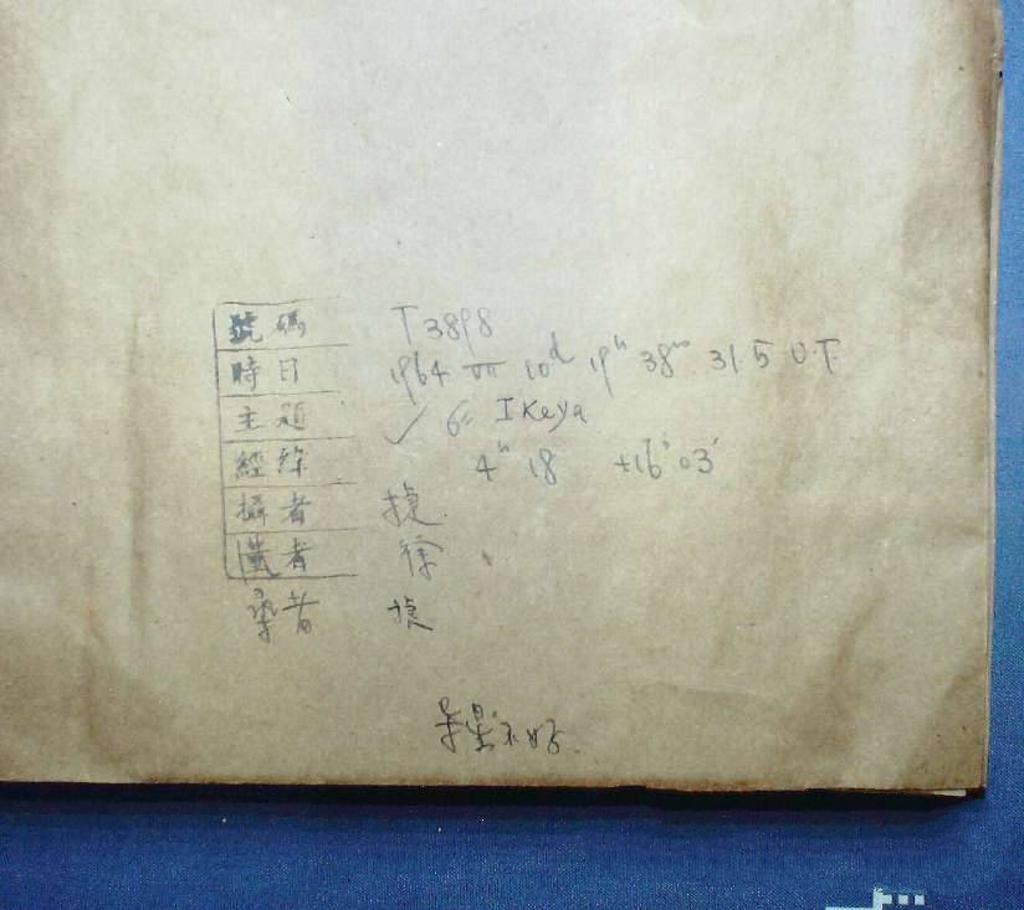 號碼 T 3898
時日 1964 VII 10ᵈ 19ʰ 38ᵐ 31.5 U.T
主題 ✓ Ikeya
經緯 4ʰ 18 +16° 03′
攝者 捷
者 徐
者 捷
導星不好.